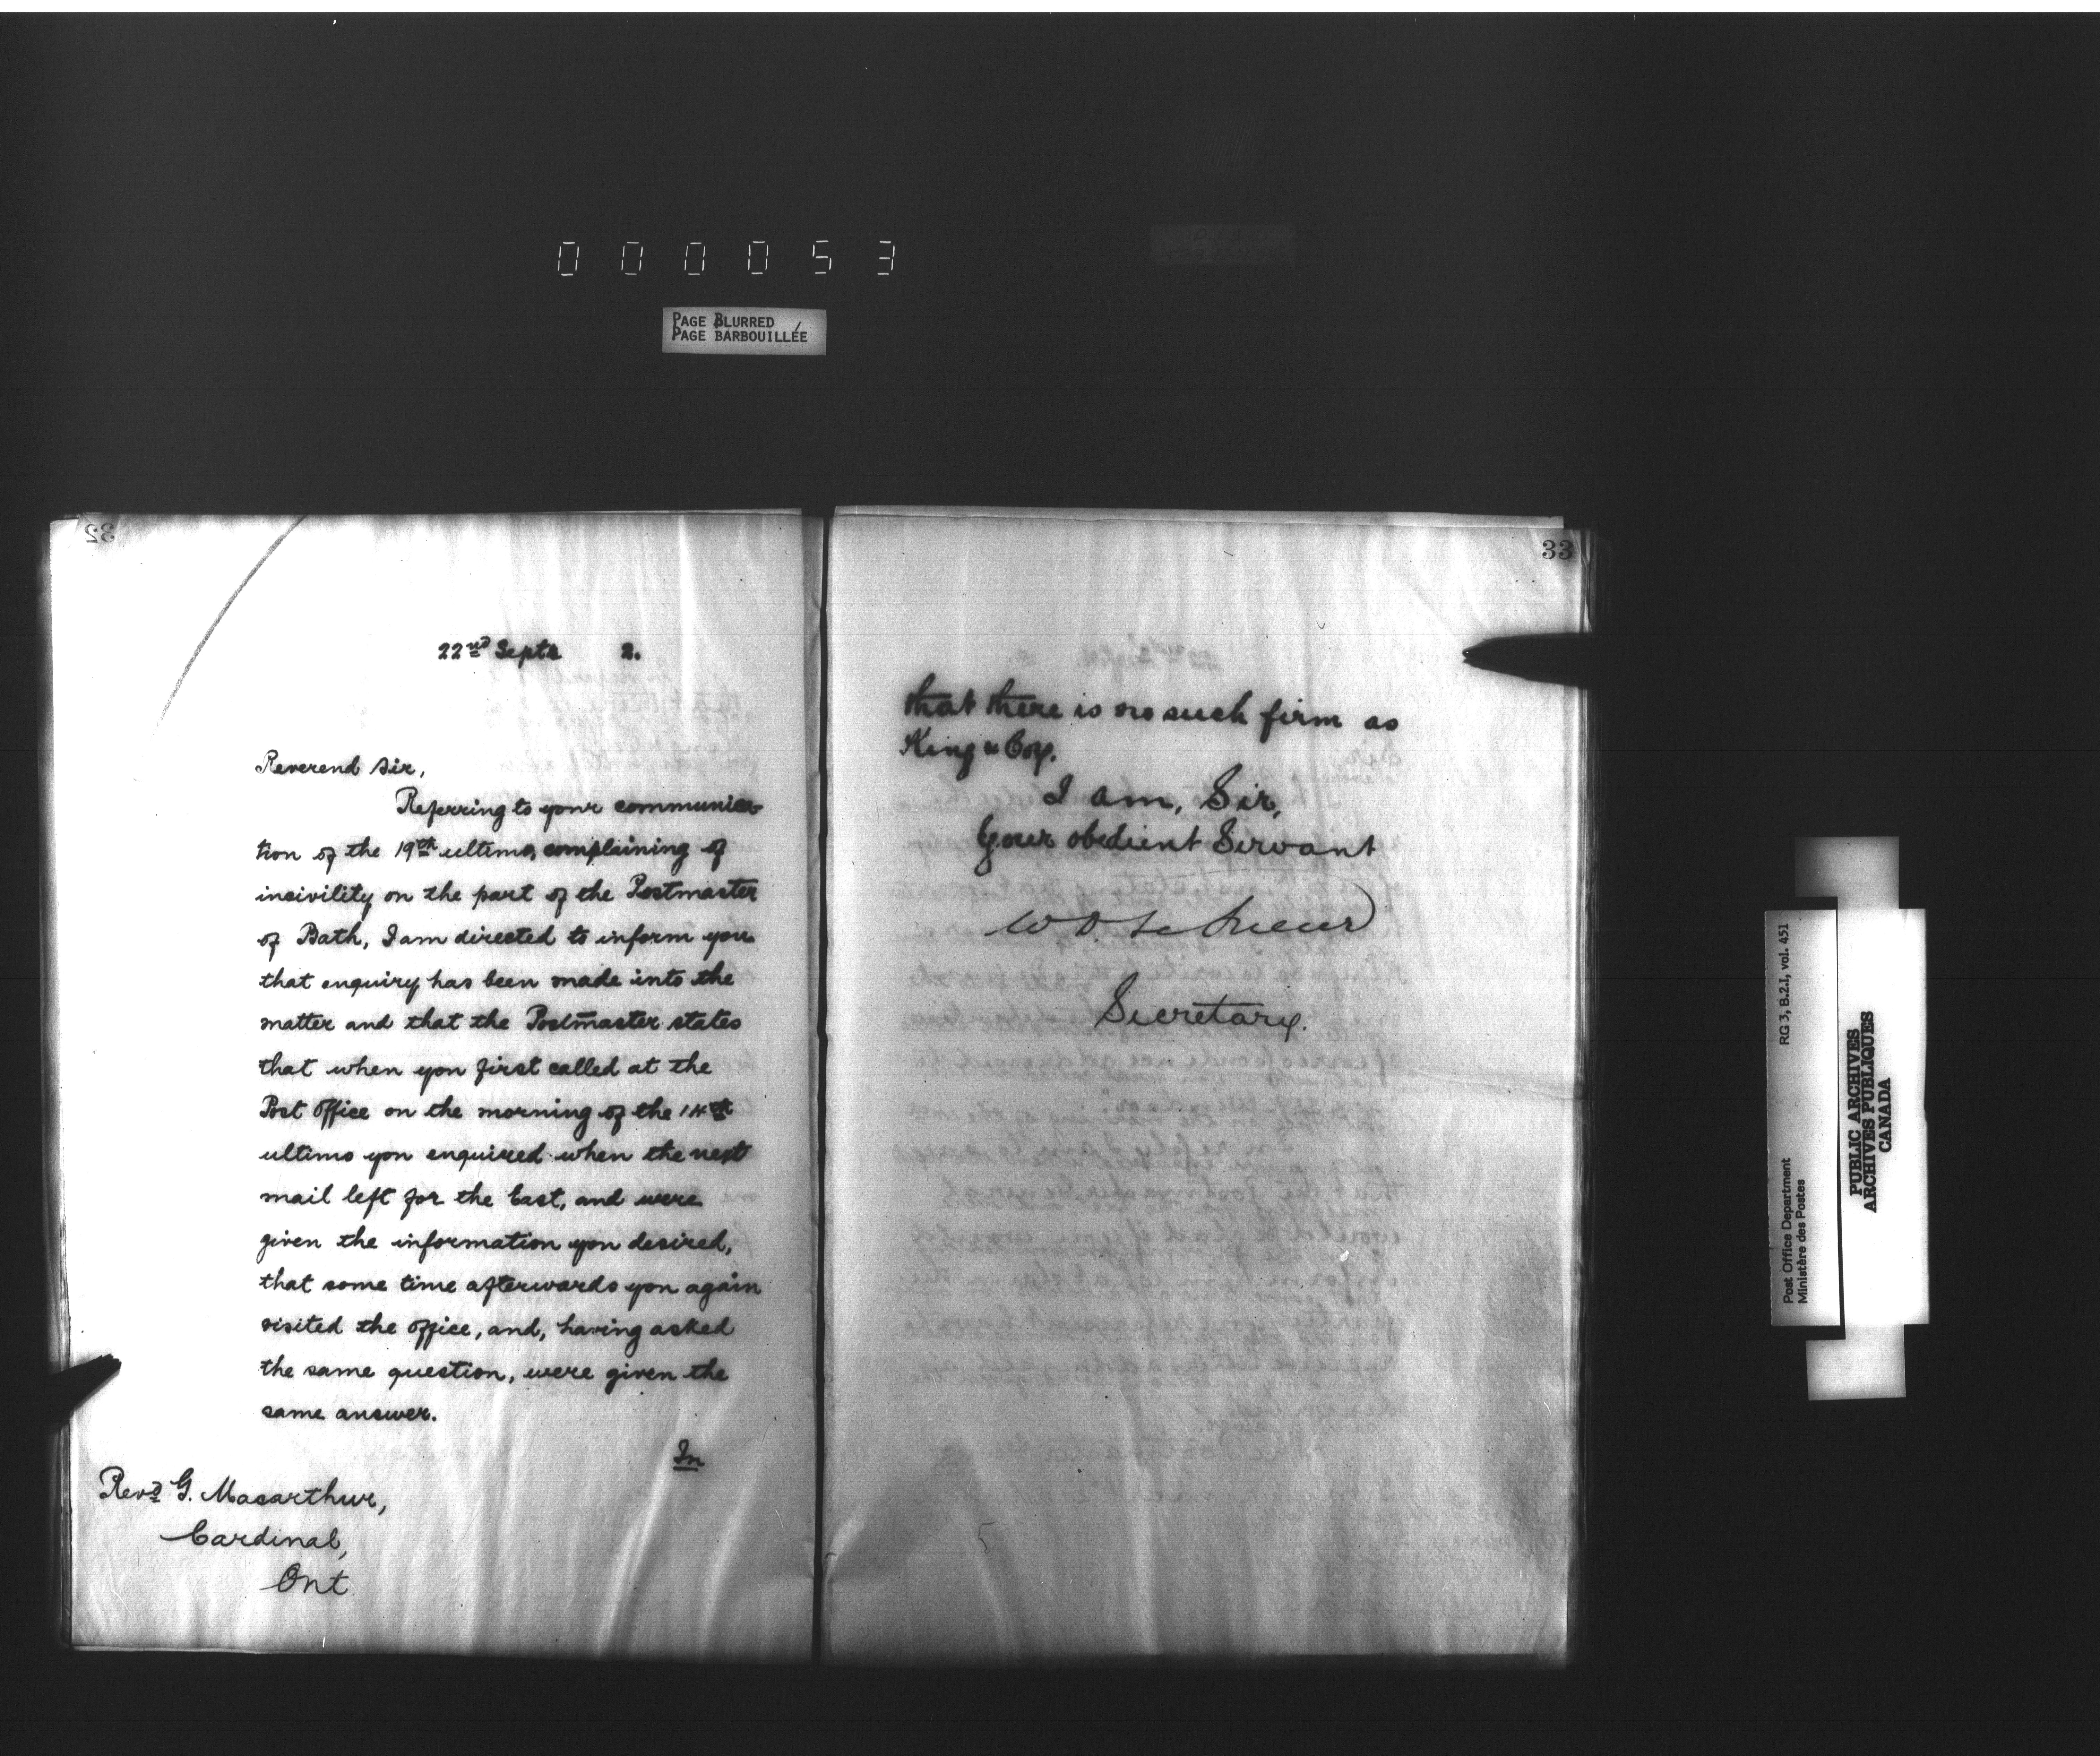 000053
PAGE BLURRED
PAGE BARBOUILLÉE
32
22nd Septr 2.
Reverend Sir,
Referring to your communica-
tion of the 19th ultimo, complaining of
incivility on the part of the Postmaster
of Bath, I am directed to inform you
that enquiry has been made into the
matter and that the Postmaster states
that when you first called at the
Post Office on the morning of the 14th
ultimo you enquired when the next
mail left for the East, and were
given the information you desired,
that some time afterwards you again
visited the office, and, having asked
the same question, were given the
same answer.
In
Revd G. Macarthur,
Cardinal,
Ont
33
that there is no such firm as
King & Coy.
I am, Sir,
Your obedient Servant
W D. LeSueur
Secretary.
Post Office Department
Ministère des Postes
RG 3, B.2.I, vol. 451
PUBLIC ARCHIVES
ARCHIVES PUBLIQUES
CANADA